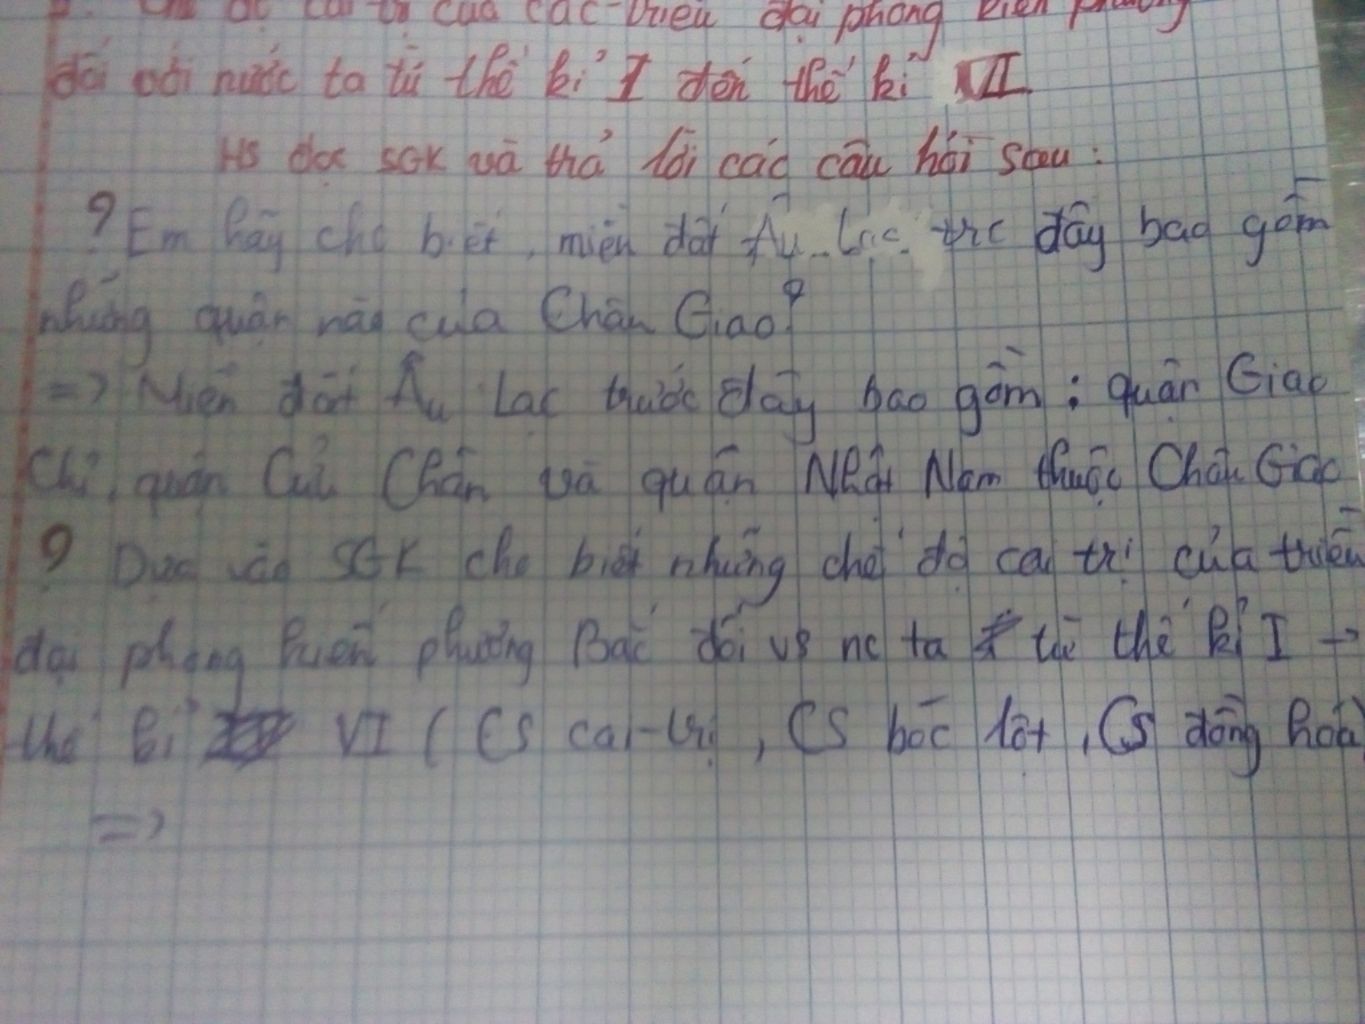 chế độ cai trị của các triều đại phong kiến phương
đối với nước ta từ thế kỉ I đến thế kỉ VI
HS đọc SGK và trả lời các câu hỏi sau:
? Em hãy cho biết, miền đất Âu Lạc trc đây bao gồm
những quận nào của Châu Giao?
=> Miền đất Âu Lạc trước đây bao gồm: quận Giao
Chỉ, quận Cửu Chân và quận Nhật Nam thuộc Châu Giao
? Dựa vào SGK cho biết những chế độ cai trị của triều
đại phong kiến phương Bắc đối vs nc ta từ thế kỉ I →
thế kỉ VI (CS cai trị, CS bóc lột, CS đồng hoá)
=>